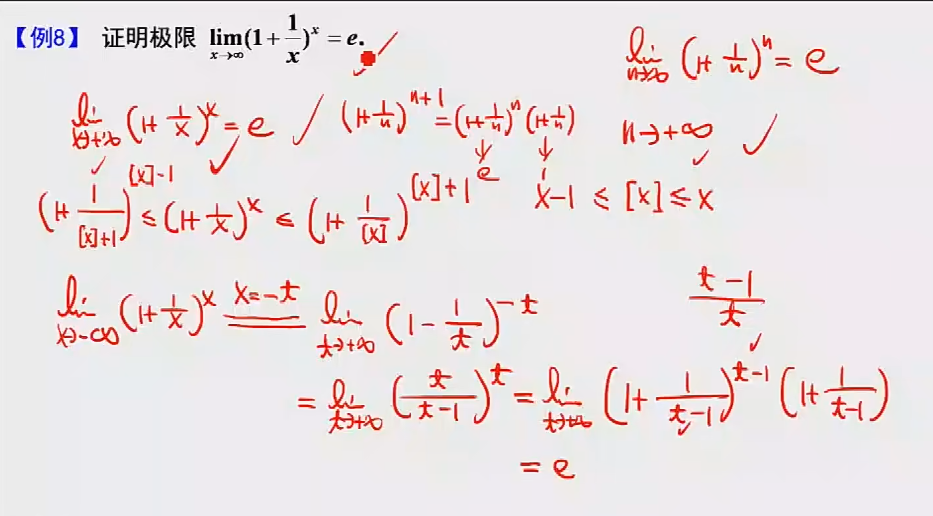 【例8】 证明极限 lim(x→∞) (1+1/x)^x = e.
lim(n→∞) (1+1/n)^n = e
lim(x→+∞) (1+1/x)^x = e ✓ (1+1/n)^(n+1) = (1+1/n)^n (1+1/n) n→+∞ ✓
↓ ↓
e 1
(1+1/([x]+1))^([x]-1) ≤ (1+1/x)^x ≤ (1+1/[x])^([x]+1) x-1 ≤ [x] ≤ x
lim(x→-∞) (1+1/x)^x =(x=-t)= lim(t→+∞) (1-1/t)^(-t) (t-1)/t
= lim(t→+∞) (t/(t-1))^t = lim(t→+∞) (1+1/(t-1))^(t-1) (1+1/(t-1))
= e